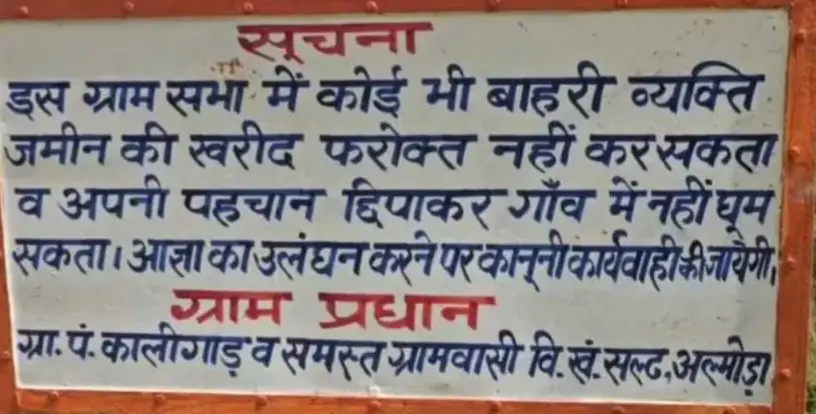 सूचना
इस ग्राम सभा में कोई भी बाहरी व्यक्ति
जमीन की खरीद फरोक्त नहीं कर सकता
व अपनी पहचान छिपाकर गाँव में नहीं घूम
सकता। आज्ञा का उलंघन करने पर कानूनी कार्यवाही की जायेगी।
ग्राम प्रधान
ग्रा. पं. कालीगाड़ व समस्त ग्रामवासी वि. खं. सल्ट, अल्मोड़ा